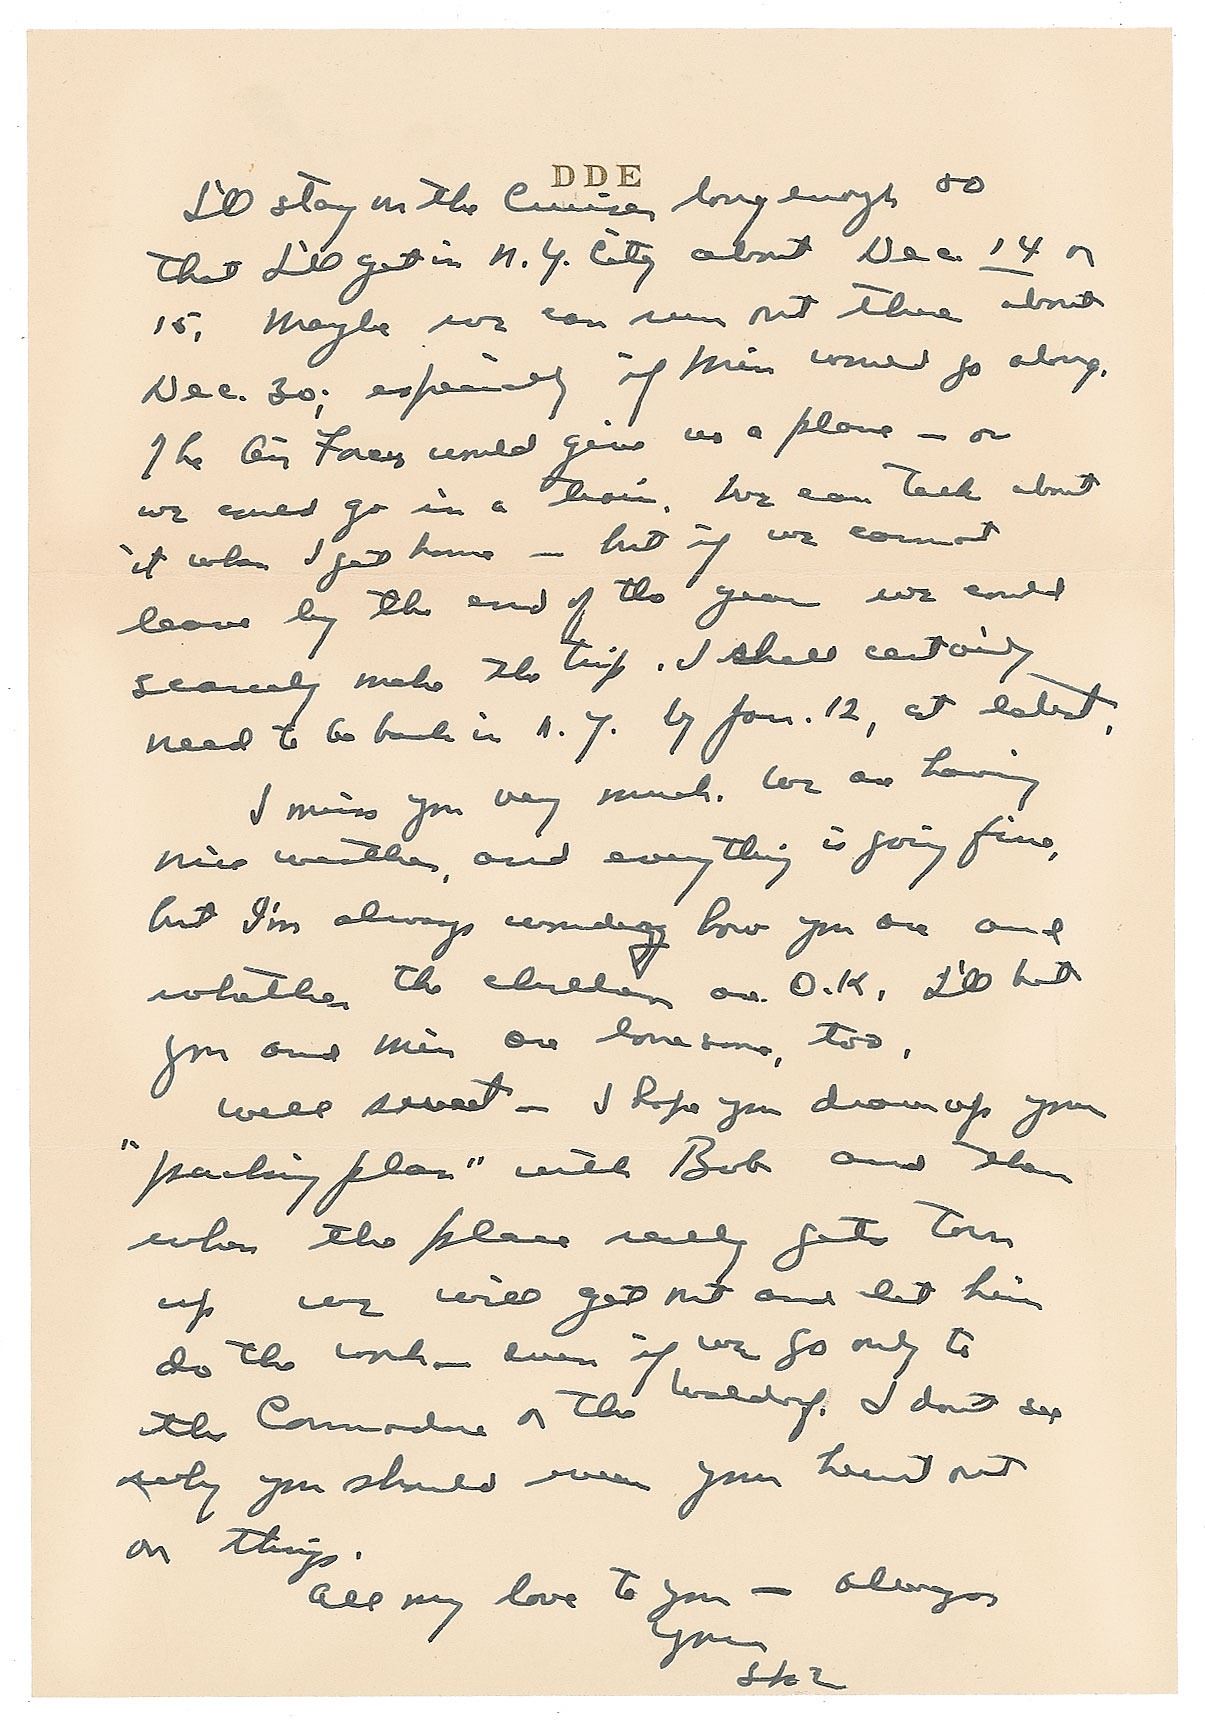 DDE
I'll stay on the Cruiser long enough so
that I'll get in N.Y. City about Dec. 14 or
15. Maybe we can run out there about
Dec. 30; especially if Min would go along.
The Air Forces would give us a plane — or
we could go in a train. We can talk about
it when I get home — but if we cannot
leave by the end of the year we could
scarcely make the trip. I shall certainly
need to be back in N.Y. by Jan. 12, at latest.
I miss you very much. We are having
nice weather, and everything is going fine,
but I'm always wondering how you are and
whether the children are O.K. I'll bet
you and Min are lonesome, too.
Well sweet — I hope you draw up your
"packing plan" with Bob and then
when the place really gets torn
up we will get out and let him
do the work — even if we go only to
the Commodore or the Waldorf. I don't see
why you should wear your heart out
on things.
All my love to you — always
Your
Ike